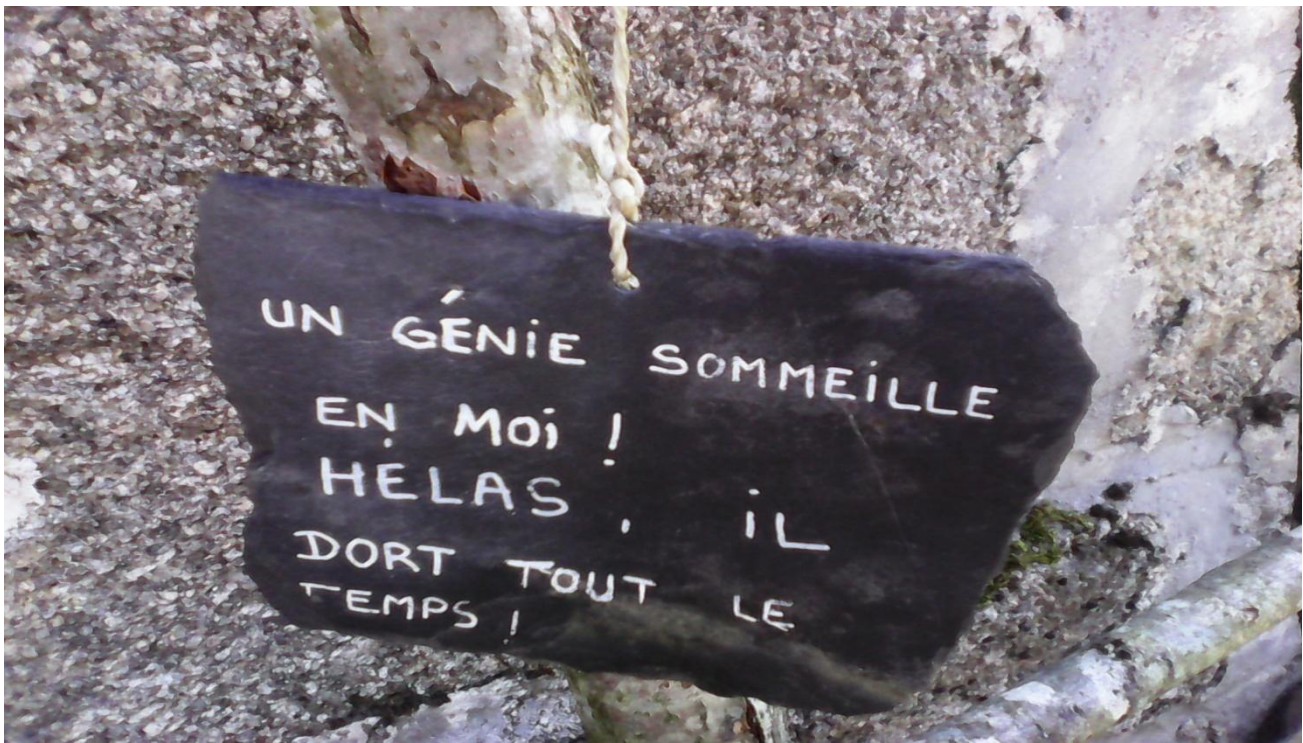 UN GÉNiE SOMMEiLLE
EN MOi !
HELAS, iL
DORT TOUT LE
TEMPS !